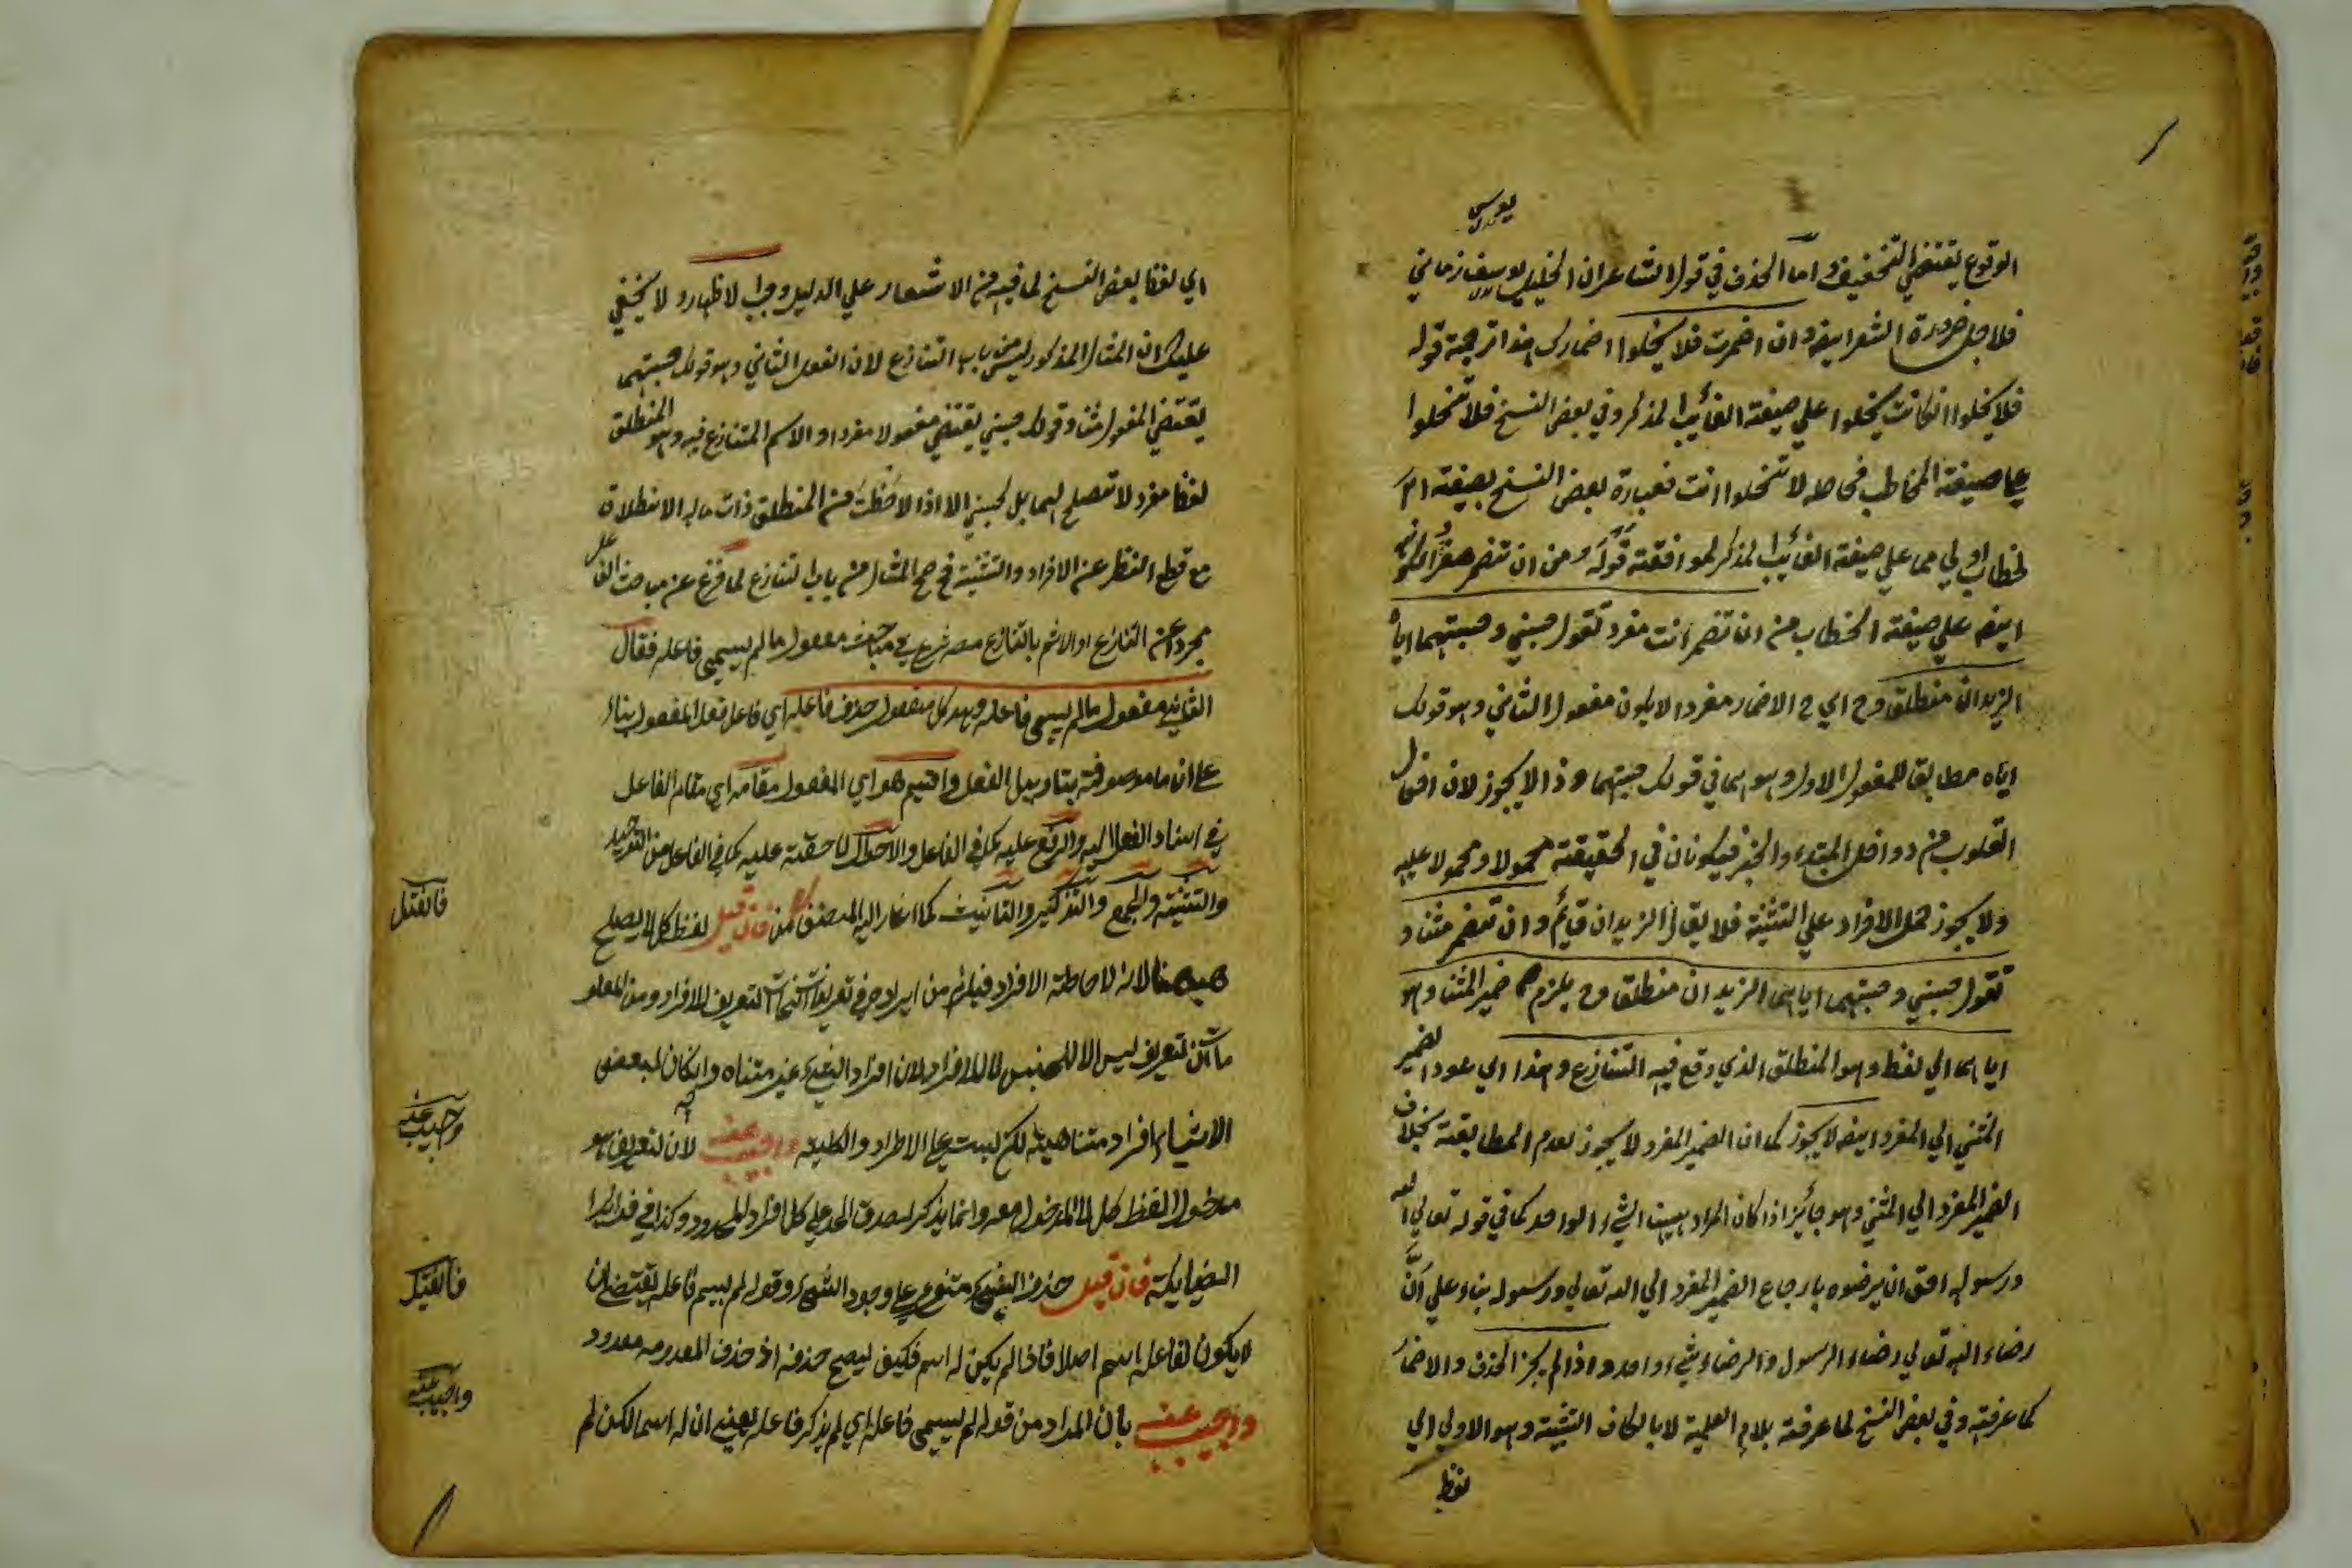 يوسى
الوقوع يقتضي التخفيف واما الحذف في قول الشاعر ان الخليل يوسف زماني
فلاجل ضرورة الشعر ايضه وان اضمرت فلا يخلوا اضمارك هذا ترجمة قوله
فلا يخلوا انكانت يخلوا علي صيغة الغائب المذكر وفي بعض النسخ فلا تخلوا
علي صيغة المخاطب فحاصله لا تخلوا انت فعبارة بعض النسخ بصيغة ام
لخطاب اولي مما علي صيغة الغائب المذكر لموافقته قوله من ان تضمر مفردا لكونه
ايضه علي صيغة الخطاب من ان تضمر انت مفردا تقول حسبني وحسبتهما اياه
الزيدان منطلقا وح اي ح الاضمار مفردا لا يكون مفعول الثاني وهو قولك
اياه مطابقا للمفعول الاول وهو هما في قولك حسبتهما وذا لا يجوز لان افعال
القلوب من دواخل المبتداء والخبر فيكونان في الحقيقة محمولا ومحمولا عليه
ولا يجوز حمل الافراد علي التثنية فلا يقال الزيدان قائم وان تضمر مثنا و
تقول حسبني وحسبتهما اياهما الزيدان منطلقا وح يلزم ضمير المثنا وهو
اياهما الي لفظ وهو المنطلق الذي وقع فيه التنازع وهذا اي عود الضمير
المثني الي المفرد ايضه لا يجوز كما ان الضمير المفرد لا يجوز لعدم المطابقة بخلاف
الضمير المفرد الي المثني وهو جائز اذا كان المراد بهيت الشيء الواحد كما في قوله تعالي الله
ورسوله احق ان يرضوه بارجاع الضمير المفرد الي الله تعالي ورسوله بناء علي ان
رضاء الله تعالي رضاء الرسول والرضاء شيء واحد واذا لم يجز الحذف والاضمار
كما عرفته وفي بعض النسخ لما عرفته بلام العلمية لا بالكاف التثنية وهو الاولي اي
لفظ
اي لفظا بعض النسخ لما فيه من الاشعار علي الدليل وجب الاظهار ولا يخفي
عليك ان المثال المذكور ليس من باب التنازع لان الفعل الثاني وهو قولك حسبتهما
يقتضي المفعول مثنا وقولك حسبني يقتضي مفعولا مفردا والاسم المتنازع فيه وهو المنطلق
لفظا مفرد لا تصلح لهما بل لحسبني الا اذا لاحظت من المنطلق ذات ماله الانطلاق
مع قطع النظر عن الافراد والتثنية فح صح المثال من باب التنازع لما فرغ عن مباحث الفاعل
مجردا عن التنازع او الاسم بالتنازع شرع في مباحث مفعول ما لم يسمي فاعله فقال
الثاني مفعول ما لم يسمي فاعله وهو كل مفعول حذف فاعله اي فاعل فعل المفعول بناء
علي ان ما موصوفة بتاويل الفعل واقيم هو اي المفعول مقامه اي مقام الفاعل
في اسناد الفعل اليه والرفع عليه كما في الفاعل والاحوال لاحقة عليه كما في الفاعل من التوحيد
والتثنية والجمع والتذكير والتانيث كما اشار اليه المصنف فان قيل لفظ كل لا يصلح
ههنا لانه لاحاطة الافراد فيلزم من ايراده في تعريفات التعريف للافراد ومن المعلو
ما ان تعريف ليس الا للجنس لا للافراد لان افراد الشيء غير متناه وانكان لبعض
الاشياء افراد متناهية لكن ليست علي الاطراد والكلية واجيب عنه لان لتعريف هو
مدخول لفظ كل لا المدخول معه وانما يذكر لصدق الحد علي كل افراد المحدود وكذا في
فان قيل حذف الشيء متفرع علي وجود الشيء وقوله لم يسم فاعله يقتضي ان
لا يكون لفاعله اسم اصلا فاذا لم يكن له اسم فكيف يصح حذفه اذ حذف المعدوم معدود
واجيب عنه بان المراد من قوله لم يسمي فاعله اي لم يذكر فاعله يعني ان له اسما لكن لم
فان قيل
واجيب عنه
فان قيل
واجيب عنه